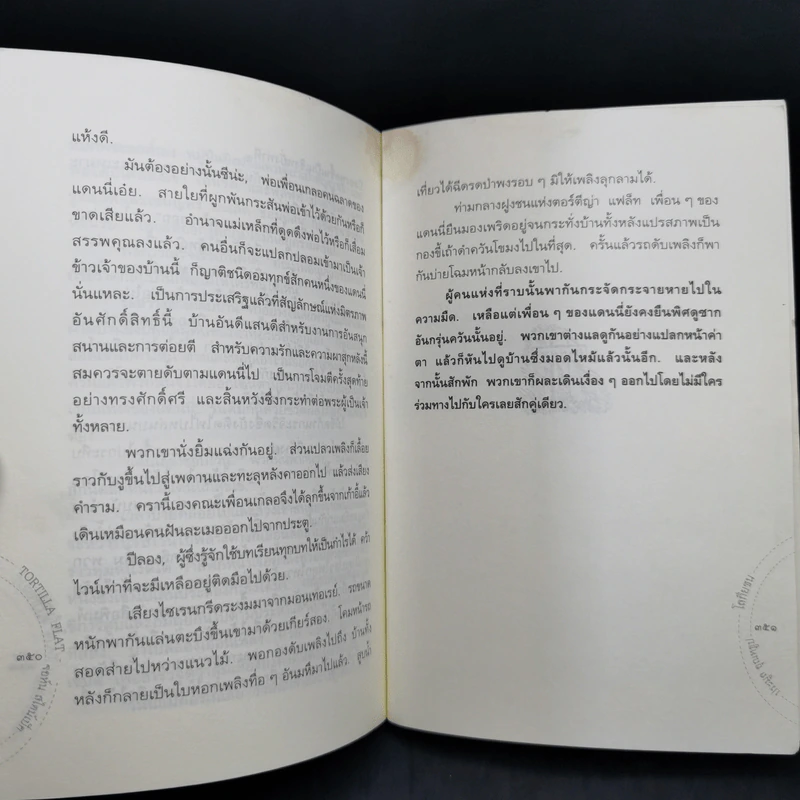 แห้งดี.
มันต้องอย่างนั้นซีน่ะ, พ่อเพื่อนเกลอคนฉลาดของ
แดนนี่เอ๋ย. สายใยที่ผูกพันกระสันพ่อเข้าไว้ด้วยกันหรือก็
ขาดเสียแล้ว. อำนาจแม่เหล็กที่ดูดดึงพ่อไว้หรือก็เสื่อม
สรรพคุณลงแล้ว. คนอื่นก็จะแปลกปลอมเข้ามาเป็นเจ้า
ข้าวเจ้าของบ้านนี้ ก็ญาติชนิดอมทุกข์สักคนหนึ่งของแดนนี่
นั่นแหละ. เป็นการประเสริฐแล้วที่สัญลักษณ์แห่งมิตรภาพ
อันศักดิ์สิทธิ์นี้ บ้านอันดีแสนดีสำหรับงานการอันสนุก
สนานและการต่อยตี สำหรับความรักและความผาสุกหลังนี้
สมควรจะตายดับตามแดนนี่ไป เป็นการโจมตีครั้งสุดท้าย
อย่างทรงศักดิ์ศรี และสิ้นหวังซึ่งกระทำต่อพระผู้เป็นเจ้า
ทั้งหลาย.
พวกเขานั่งยิ้มแฉ่งกันอยู่. ส่วนเปลวเพลิงก็เลื้อย
ราวกับงูขึ้นไปสู่เพดานและทะลุหลังคาออกไป แล้วส่งเสียง
คำราม. ครานี้เองคณะเพื่อนเกลอจึงได้ลุกขึ้นจากเก้าอี้แล้ว
เดินเหมือนคนฝันละเมอออกไปจากประตู.
ปีลอง, ผู้ซึ่งรู้จักใช้บทเรียนทุกบทให้เป็นกำไรได้ คว้า
ไวน์เท่าที่จะมีเหลืออยู่ติดมือไปด้วย.
เสียงไซเรนกรีดระงมมาจากมอนเทอเรย์. รถขนาด
หนักพากันแล่นตะบึงขึ้นเขามาด้วยเกียร์สอง. โคมหน้ารถ
สอดส่ายไปหว่างแนวไม้. พอกองดับเพลิงไปถึง บ้านทั้ง
หลังก็กลายเป็นใบหอกเพลิงที่อ ๆ อันมหึมาไปแล้ว. สูบน้ำ
TORTILLA FLAT
๓๕๐
จอห์น สไตน์เบ็ค
เที่ยวได้ฉีดรดป่าพงรอบ ๆ มิให้เพลิงลุกลามได้.
ท่ามกลางฝูงชนแห่งตอร์ตีญ่า แฟล็ท เพื่อน ๆ ของ
แดนนี่ยืนมองเพริดอยู่จนกระทั่งบ้านทั้งหลังแปรสภาพเป็น
กองขี้เถ้าดำควันโขมงไปในที่สุด. ครั้นแล้วรถดับเพลิงก็พา
กันบ่ายโฉมหน้ากลับลงเขาไป.
ผู้คนแห่งที่ราบนั้นพากันกระจัดกระจายหายไปใน
ความมืด. เหลือแต่เพื่อน ๆ ของแดนนี่ยังคงยืนพิศดูซาก
อันกรุ่นควันนั้นอยู่. พวกเขาต่างแลดูกันอย่างแปลกหน้าค่า
ตา แล้วก็หันไปดูบ้านซึ่งมอดไหม้แล้วนั้นอีก. และหลัง
จากนั้นสักพัก พวกเขาก็ผละเดินเงื่อง ๆ ออกไปโดยไม่มีใคร
ร่วมทางไปกับใครเลยสักคู่เดียว.
โลกียชน
๓๕๑